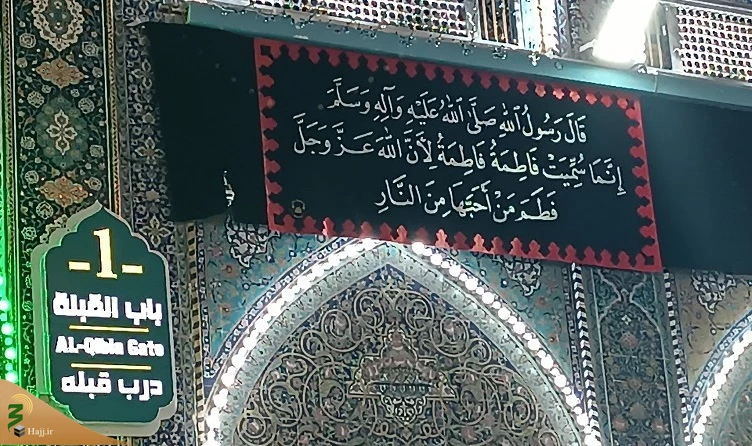 قَالَ رَسُولُ اللهِ صَلَّى اللهُ عَلَيْهِ وَآلِهِ وَسَلَّمَ
إِنَّمَا سُمِّيَتْ فَاطِمَةُ فَاطِمَةُ لِأَنَّ اللهَ عَزَّ وَجَلَّ
فَطَمَ مَنْ أَحَبَّهَا مِنَ النَّارِ
-1-
باب القبلة
AL-Qibla Gate
درب قبله
Hajj.ir